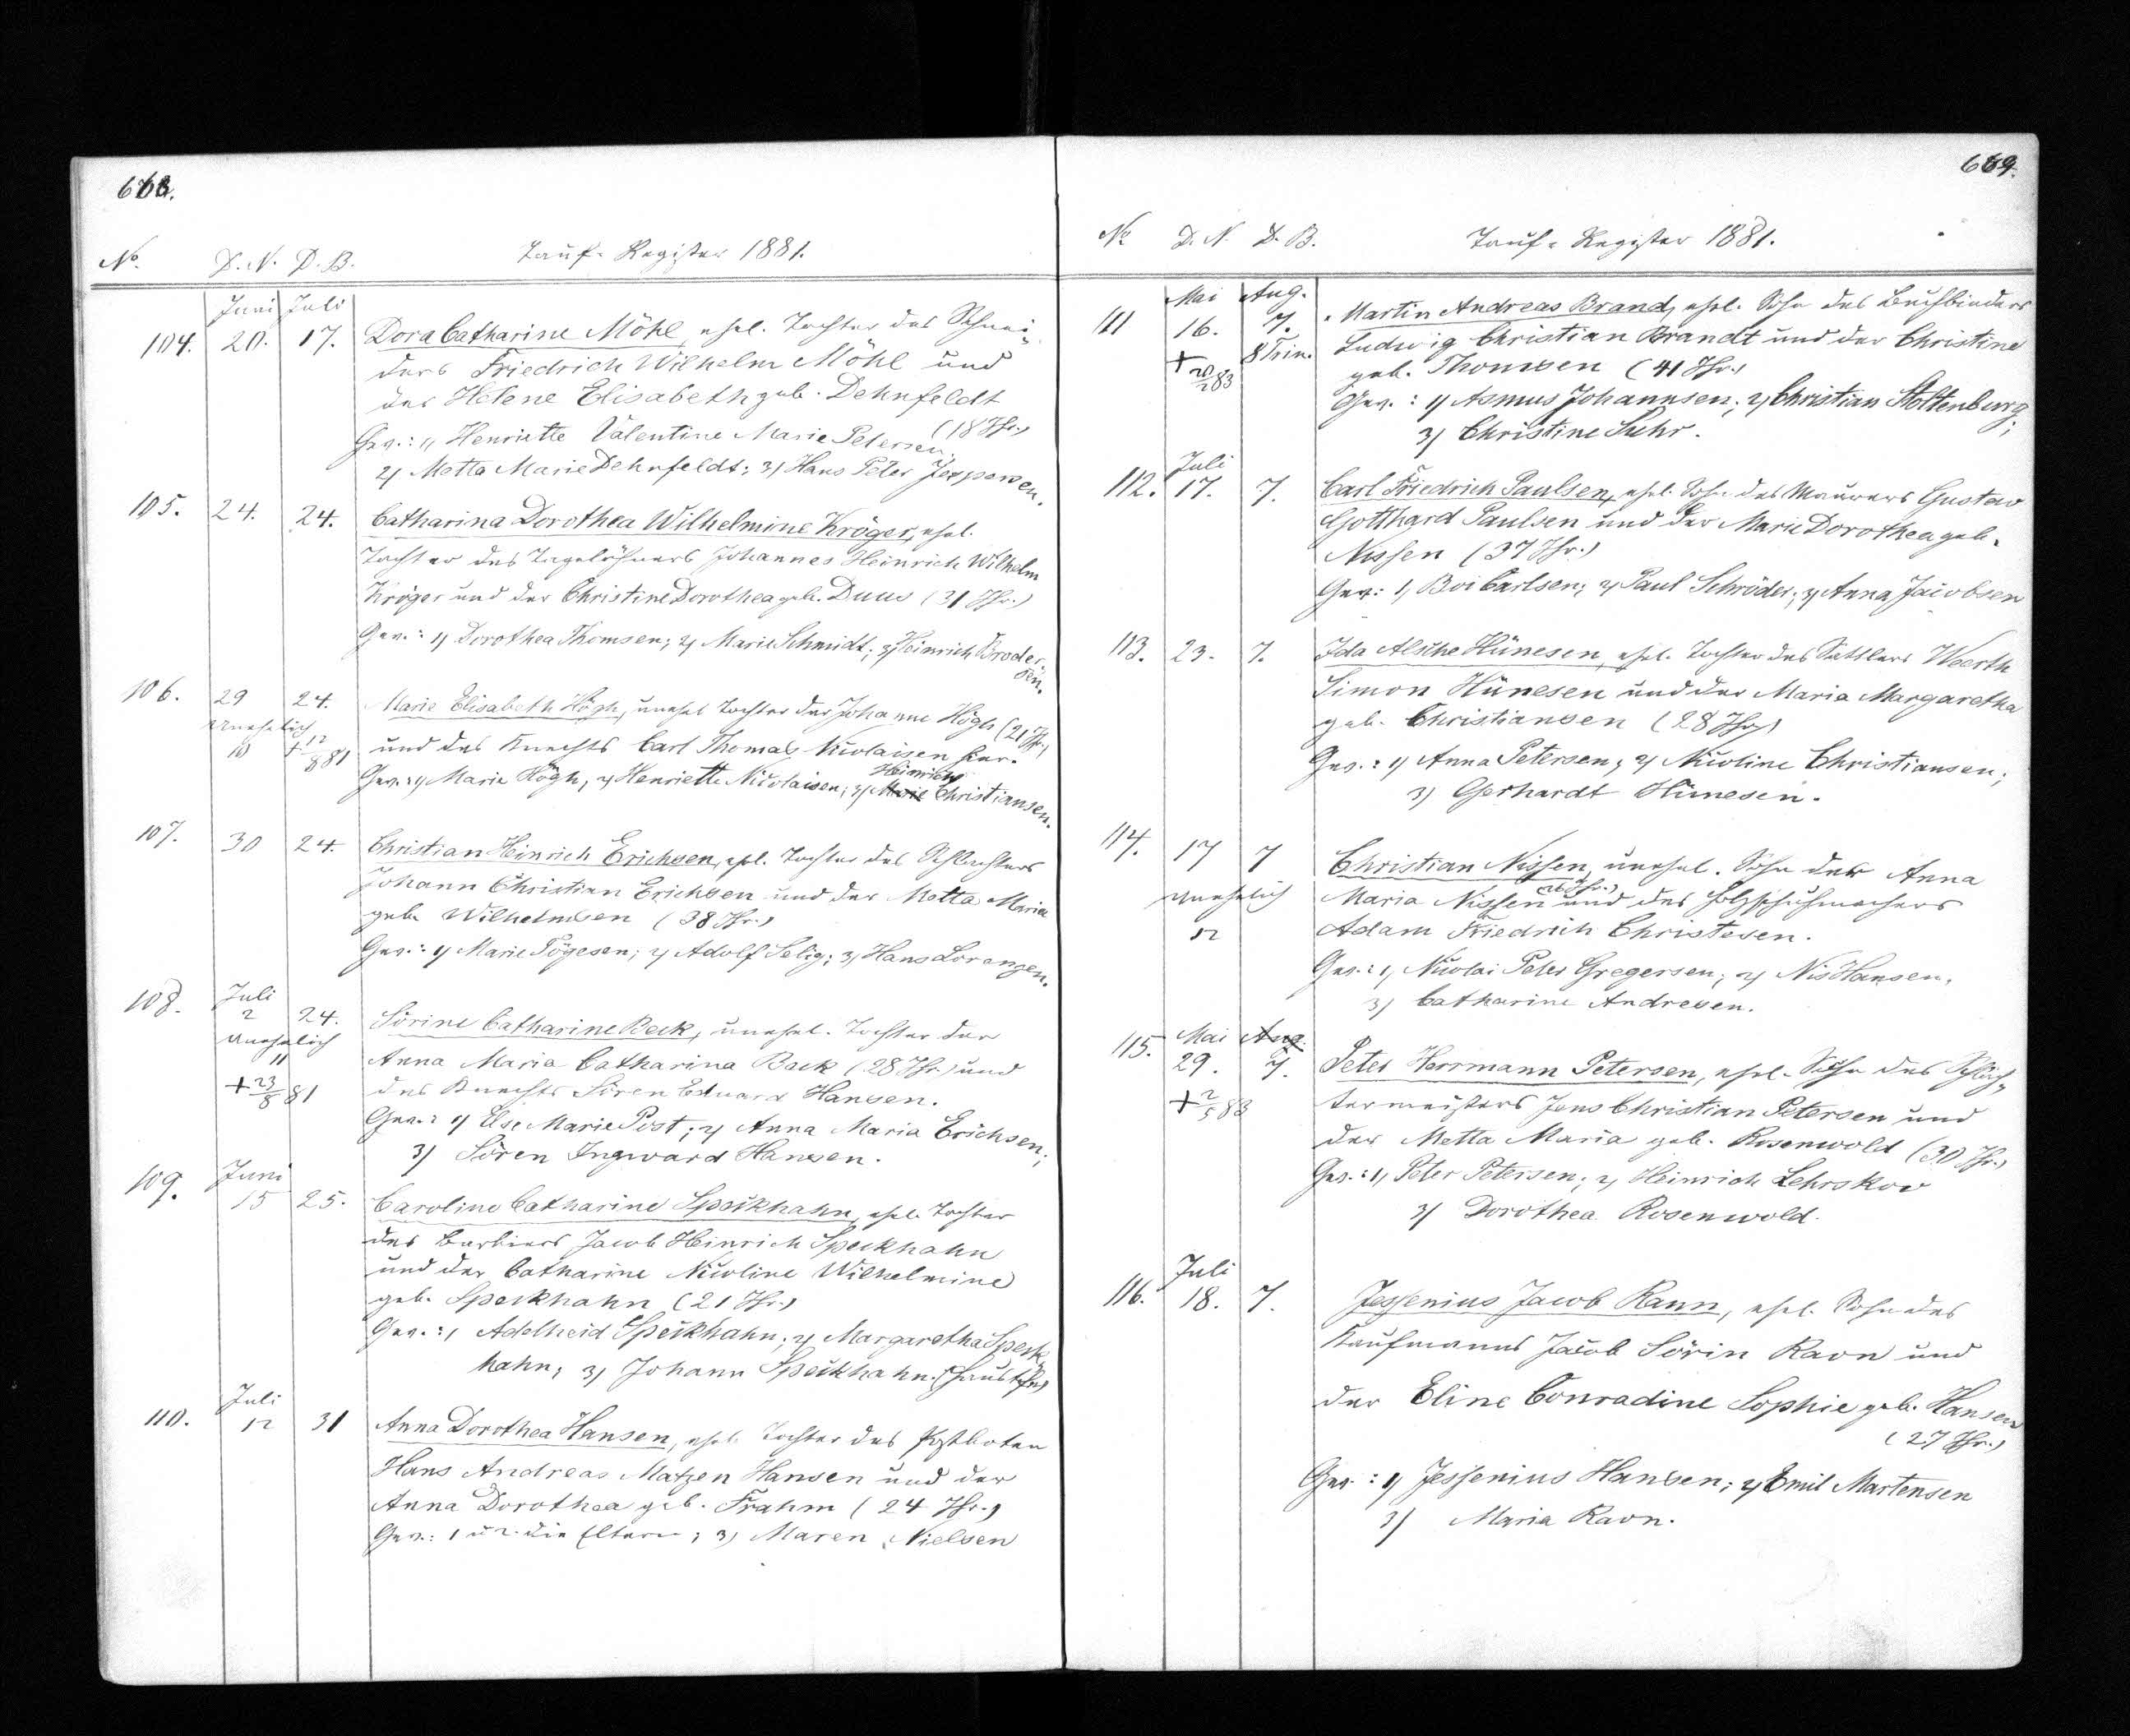 668.
No. D. N. D. B. Tauf-Register 1881.
Juni Juli
104. 20. 17. Dora Catharine Möhl, ehel. Tochter des Schnei-
ders Friedrich Wilhelm Möhl und
der Helene Elisabeth geb. Dehnfeldt
(18 Jhr.)
Gev.: 1) Henriette Valentine Marie Petersen;
2) Metta Marie Dehnfeldt; 3) Hans Peter Jeppesen.
105. 24. 24. Catharina Dorothea Wilhelmine Kröger, ehel.
Tochter des Tagelöhners Johannes Heinrich Wilhelm
Kröger und der Christine Dorothea geb. Duus (31 Jhr.)
Gev.: 1) Dorothea Thomsen; 2) Marie Schmidt; 3) Heinrich Broder-
sen.
106. 29 24. Marie Elisabeth Högh, unehel. Tochter der Johanne Högh (21 Jhr.)
unehelich
10 + 12/8 81 und des Knechts Carl Thomas Nicolaisen
Heinrich
Gev.: 1) Marie Högh, 2) Henriette Nicolaisen; 3) Christiansen.
107. 30 24. Christian Heinrich Erichsen, ehel. Tochter des Schlachters
Johann Christian Erichsen und der Metta Maria
geb. Wilhelmsen (38 Jhr.)
Gev.: 1) Marie Tögesen; 2) Adolf Selig; 3) Hans Lorenzen.
Juli
108. 2 24. Sörine Catharine Beck, unehel. Tochter der
unehelich
11 Anna Maria Catharina Beck (28 Jhr.) und
+ 23/8 81 des Knechts Sören Eduard Hansen.
Gev.: 1) Else Marie Post; 2) Anna Maria Erichsen;
3) Sören Ingward Hansen.
Juni
109. 15 25. Caroline Catharine Speckhahn, ehel. Tochter
des Barbiers Jacob Heinrich Speckhahn
und der Catharine Nicoline Wilhelmine
geb. Speckhahn (21 Jhr.)
Gev.: 1, Adelheid Speckhahn; 2) Margaretha Speck-
hahn; 3) Johann Speckhahn.
Juli
110. 12 31 Anna Dorothea Hansen, ehel. Tochter des Postboten
Hans Andreas Matzen Hansen und der
Anna Dorothea geb. Frahm (24 Jhr.)
Gev.: 1 u 2. die Eltern; 3) Maren Nielsen
669.
No D. N. D. B. Tauf-Register 1881.
Mai Aug.
111 16. 7. Martin Andreas Brand, ehel. Sohn des Buchbinders
8 Trin. Ludwig Christian Brandt und der Christine
+ 20/2 83 geb. Thomsen (41 Jhr.)
Gev.: 1) Asmus Johannsen; 2) Christian Stoltenburg;
3) Christine Suhr.
Juli
112. 17. 7. Carl Friedrich Paulsen, ehel. Sohn des Maurers Gustav
Gotthard Paulsen und der Marie Dorothea geb.
Nissen (37 Jhr.)
Gev: 1, Boi Carlsen; 2) Paul Schröder; 3) Anna Jacobsen
113. 23. 7. Ida Alsche Hünesen, ehel. Tochter des Sattlers Weerth
Simon Hünesen und der Maria Margaretha
geb. Christiansen (28 Jhr)
Gev.: 1) Anna Petersen; 2) Nicoline Christiansen;
3) Gerhardt Hünesen.
114. 17 7 Christian Nissen, unehel. Sohn der Anna
unehelich Maria Nissen (26 Jhr.) und des Holzschuhmachers
12 Adam Friedrich Christesen.
Gev.: 1, Nicolai Peter Gregersen; 2) Nis Hansen,
3) Catharine Andresen.
Mai Aug.
115. 29. 7. Peter Herrmann Petersen, ehel. Sohn des Schläch-
+ 2/5 83 termeisters Jens Christian Petersen und
der Metta Maria geb. Rosenwold (30 Jhr.)
Gev.: 1, Peter Petersen; 2, Heinrich Lehrskov
3) Dorothea Rosenwold.
Juli
116. 18. 7. Jessenius Jacob Raun, ehel. Sohn des
Kaufmanns Jacob Sörin Ravn und
der Eline Conradine Sophie geb. Hansen
(27 Jhr.)
Gev.: 1) Jessenius Hansen; 2) Emil Martensen
3) Maria Ravn.